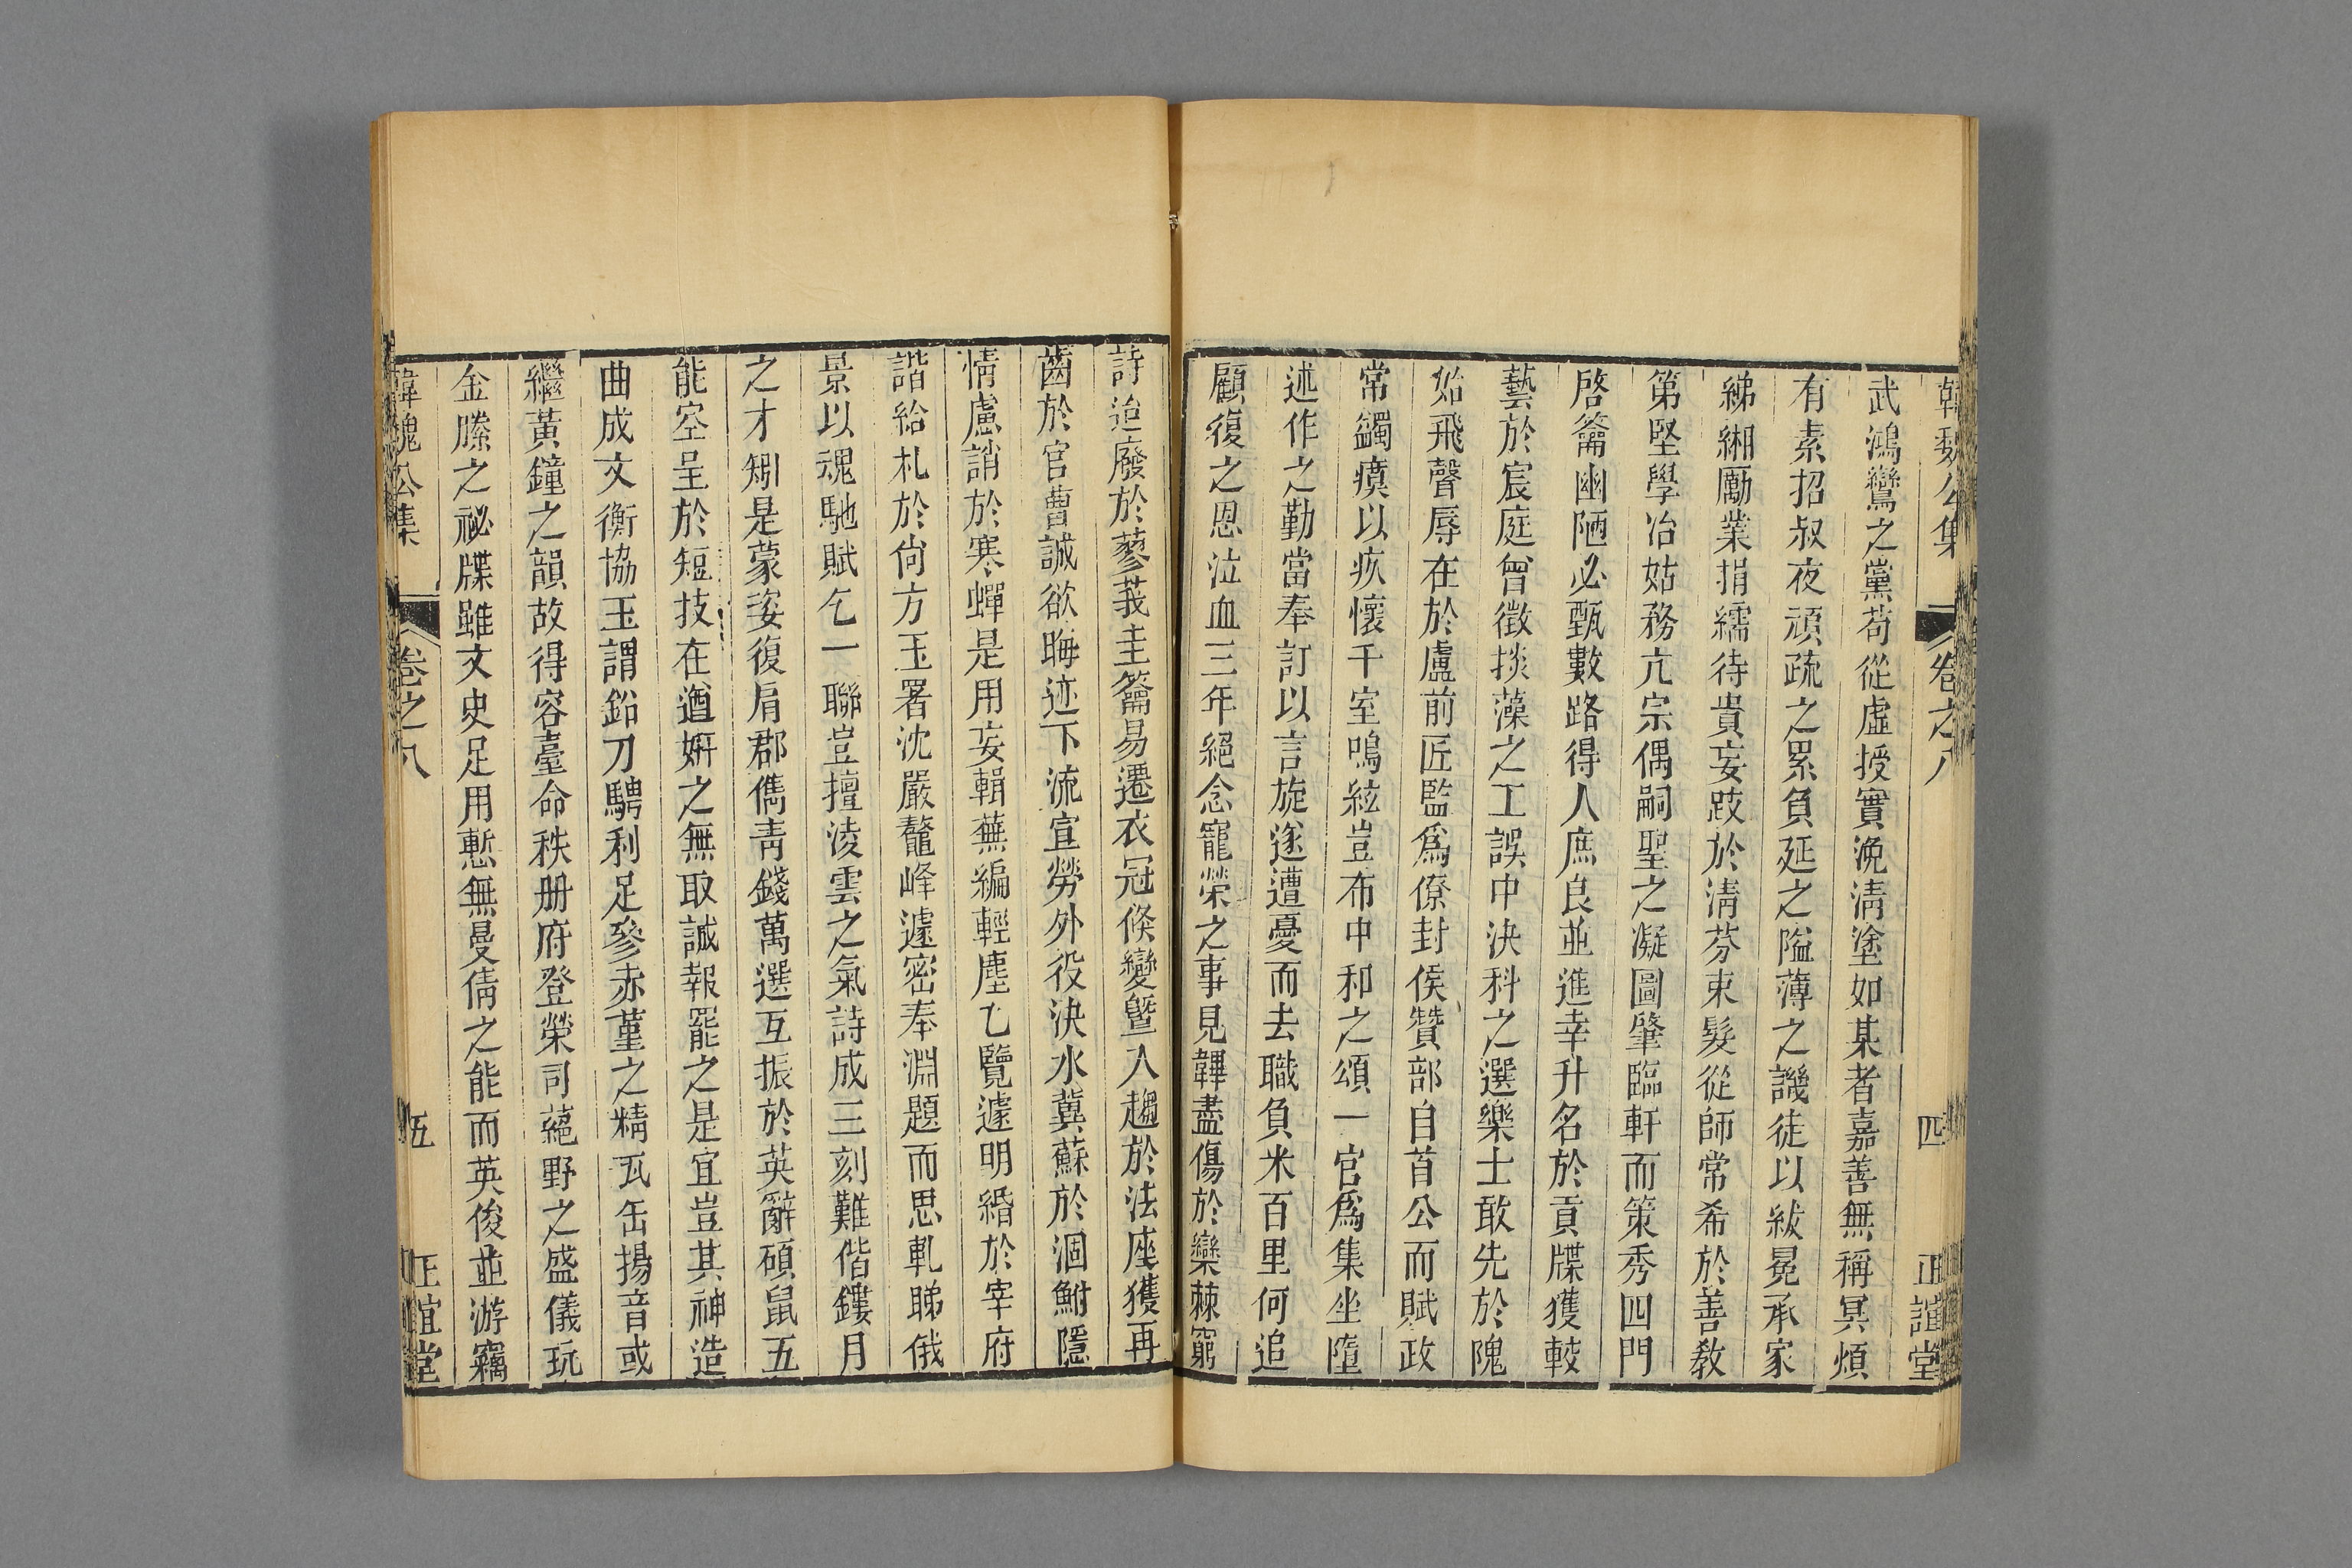 韓魏公集 卷之八 四 正誼堂
武鴻鸞之黨苟從虛授實浼清塗如某者嘉善無稱冥煩
有素招叔夜頑疏之累負延之隘薄之譏徒以紱冕承家
綈緗勵業捐繻待貴妄跂於清芬束髮從師常希於善教
第堅學冶姑務亢宗偶嗣聖之凝圖肇臨軒而策秀四門
啓籥幽陋必甄數路得人庶良並進幸升名於貢牒獲較
藝於宸庭曾微掞藻之工誤中決科之選樂士敢先於隗
始飛聲辱在於盧前匠監爲僚封侯贊部自首公而賦政
常蠲瘼以疚懷千室鳴絃豈布中和之頌一官爲集坐墮
述作之勤當奉訂以言旋遂遭憂而去職負米百里何追
顧復之恩泣血三年絕念寵榮之事見韠盡傷於欒棘窮
詩迨廢於蓼莪圭籥易遷衣冠倏變曁入趨於法座獲再
齒於官曹誠欲晦迹下流宣勞外役決水冀蘇於涸鮒隱
情慮誚於寒蟬是用妄輯蕪編輕塵乙覽遽明緡於宰府
諧給札於尚方玉署沈嚴鼇峰遽密奉淵題而思軋睇俄
景以魂馳賦乞一聯豈擅淩雲之氣詩成三刻難偕鏤月
之才矧是蒙姿復肩郡儁靑錢萬選互振於英辭碩鼠五
能空呈於短技在遒姸之無取誠報罷之是宜豈其神造
曲成文衡協玉謂鉛刀騁利足參赤堇之精瓦缶揚音或
繼黃鐘之韻故得容臺命秩册府登榮司蕝野之盛儀玩
金縢之祕牒雖文史足用慙無曼倩之能而英俊並游竊
韓魏公集 卷之八 五 正誼堂